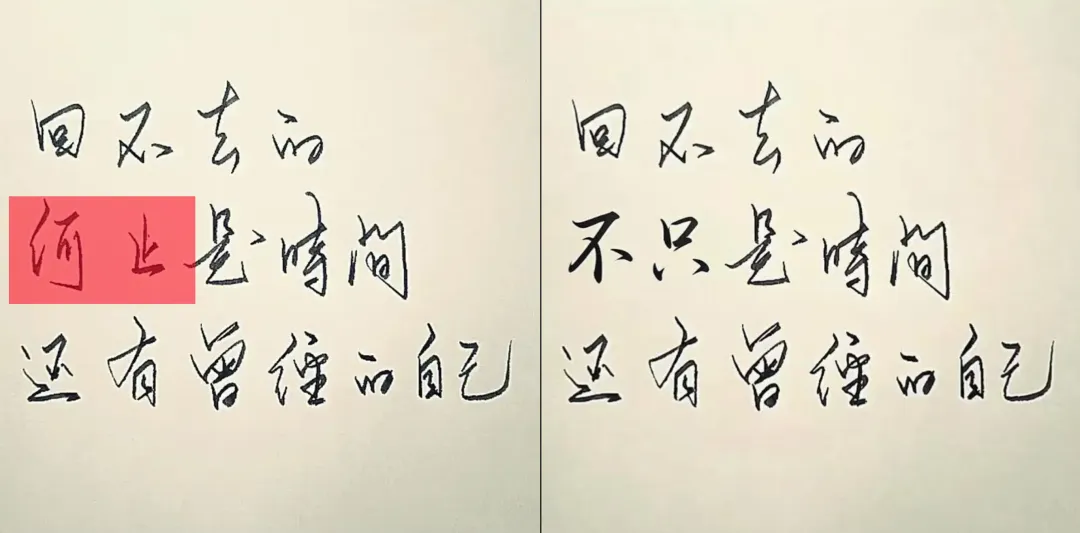 回不去的
何止是時間
还有曾經的自己
回不去的
不只是時間
还有曾經的自己